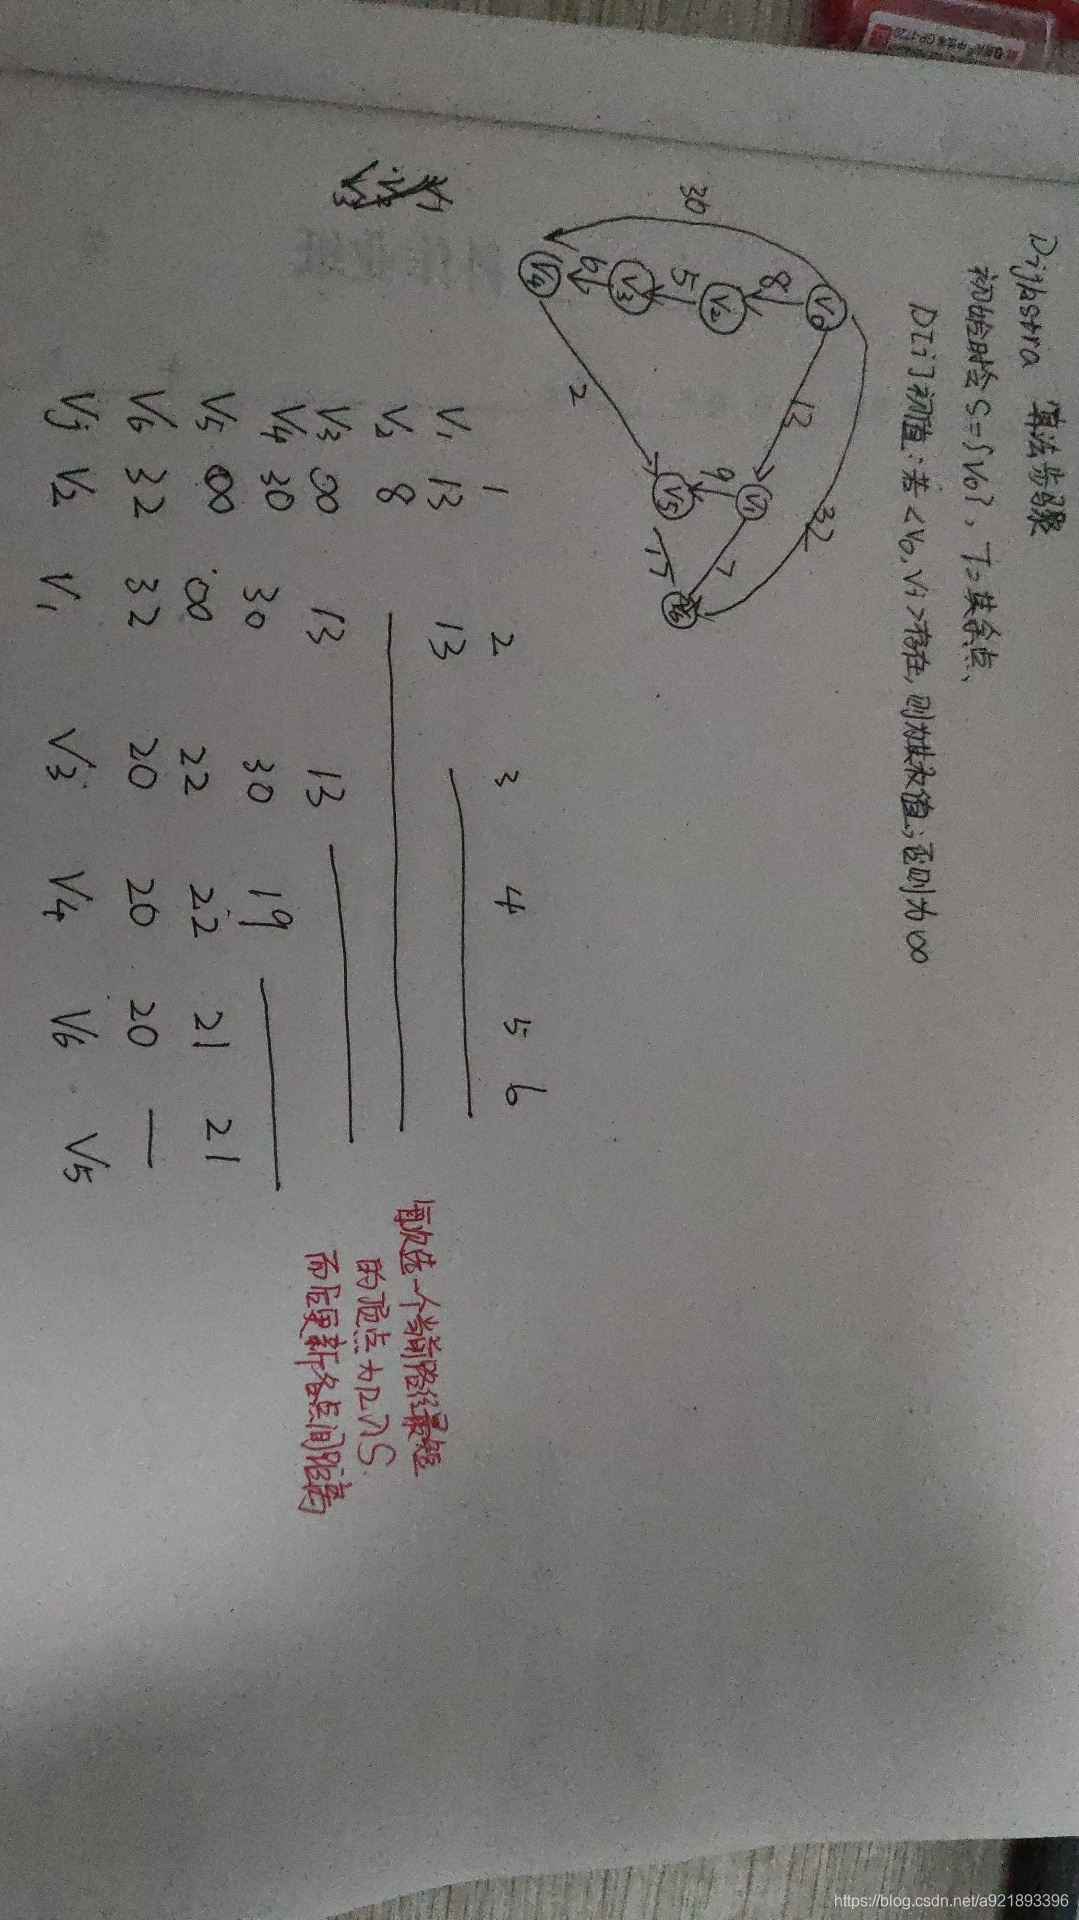 Dijkstra 算法步骤
初始时令S={V0}, T=其余点、
D[i]初值:若<V0,Vi>存在,则为其权值;否则为∞
30
V0
8
V2
5
V3
6
V4
13
32
V1
9
V5
7
V6
2
17
1 2 3 4 5 6
V1 13 13
V2 8
V3 ∞ 13 13
V4 30 30 30 19
V5 ∞ ∞ 22 22 21 21
V6 32 32 20 20 20 —
Vj V2 V1 V3 V4 V6 V5
每次选一个当前路径最短
的顶点加入S
而后更新各点间距离
https://blog.csdn.net/a921893396